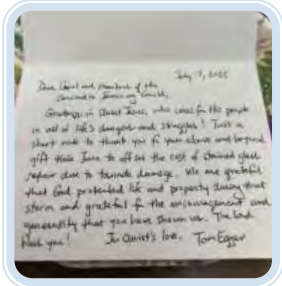 July 17, 2025
Dear Carol and members of the
Concordia Seminary Guild,
Greetings in Christ Jesus, who cares for the people
in all of life's dangers and struggles! Just a
short note to thank you for your above and beyond
gift this June to offset the cost of stained glass
repair due to tornado damage. We are grateful
that God protected life and property during that
storm and grateful for the encouragement and
generosity that you have shown us. The Lord
bless you!
In Christ's love, Tom Egger